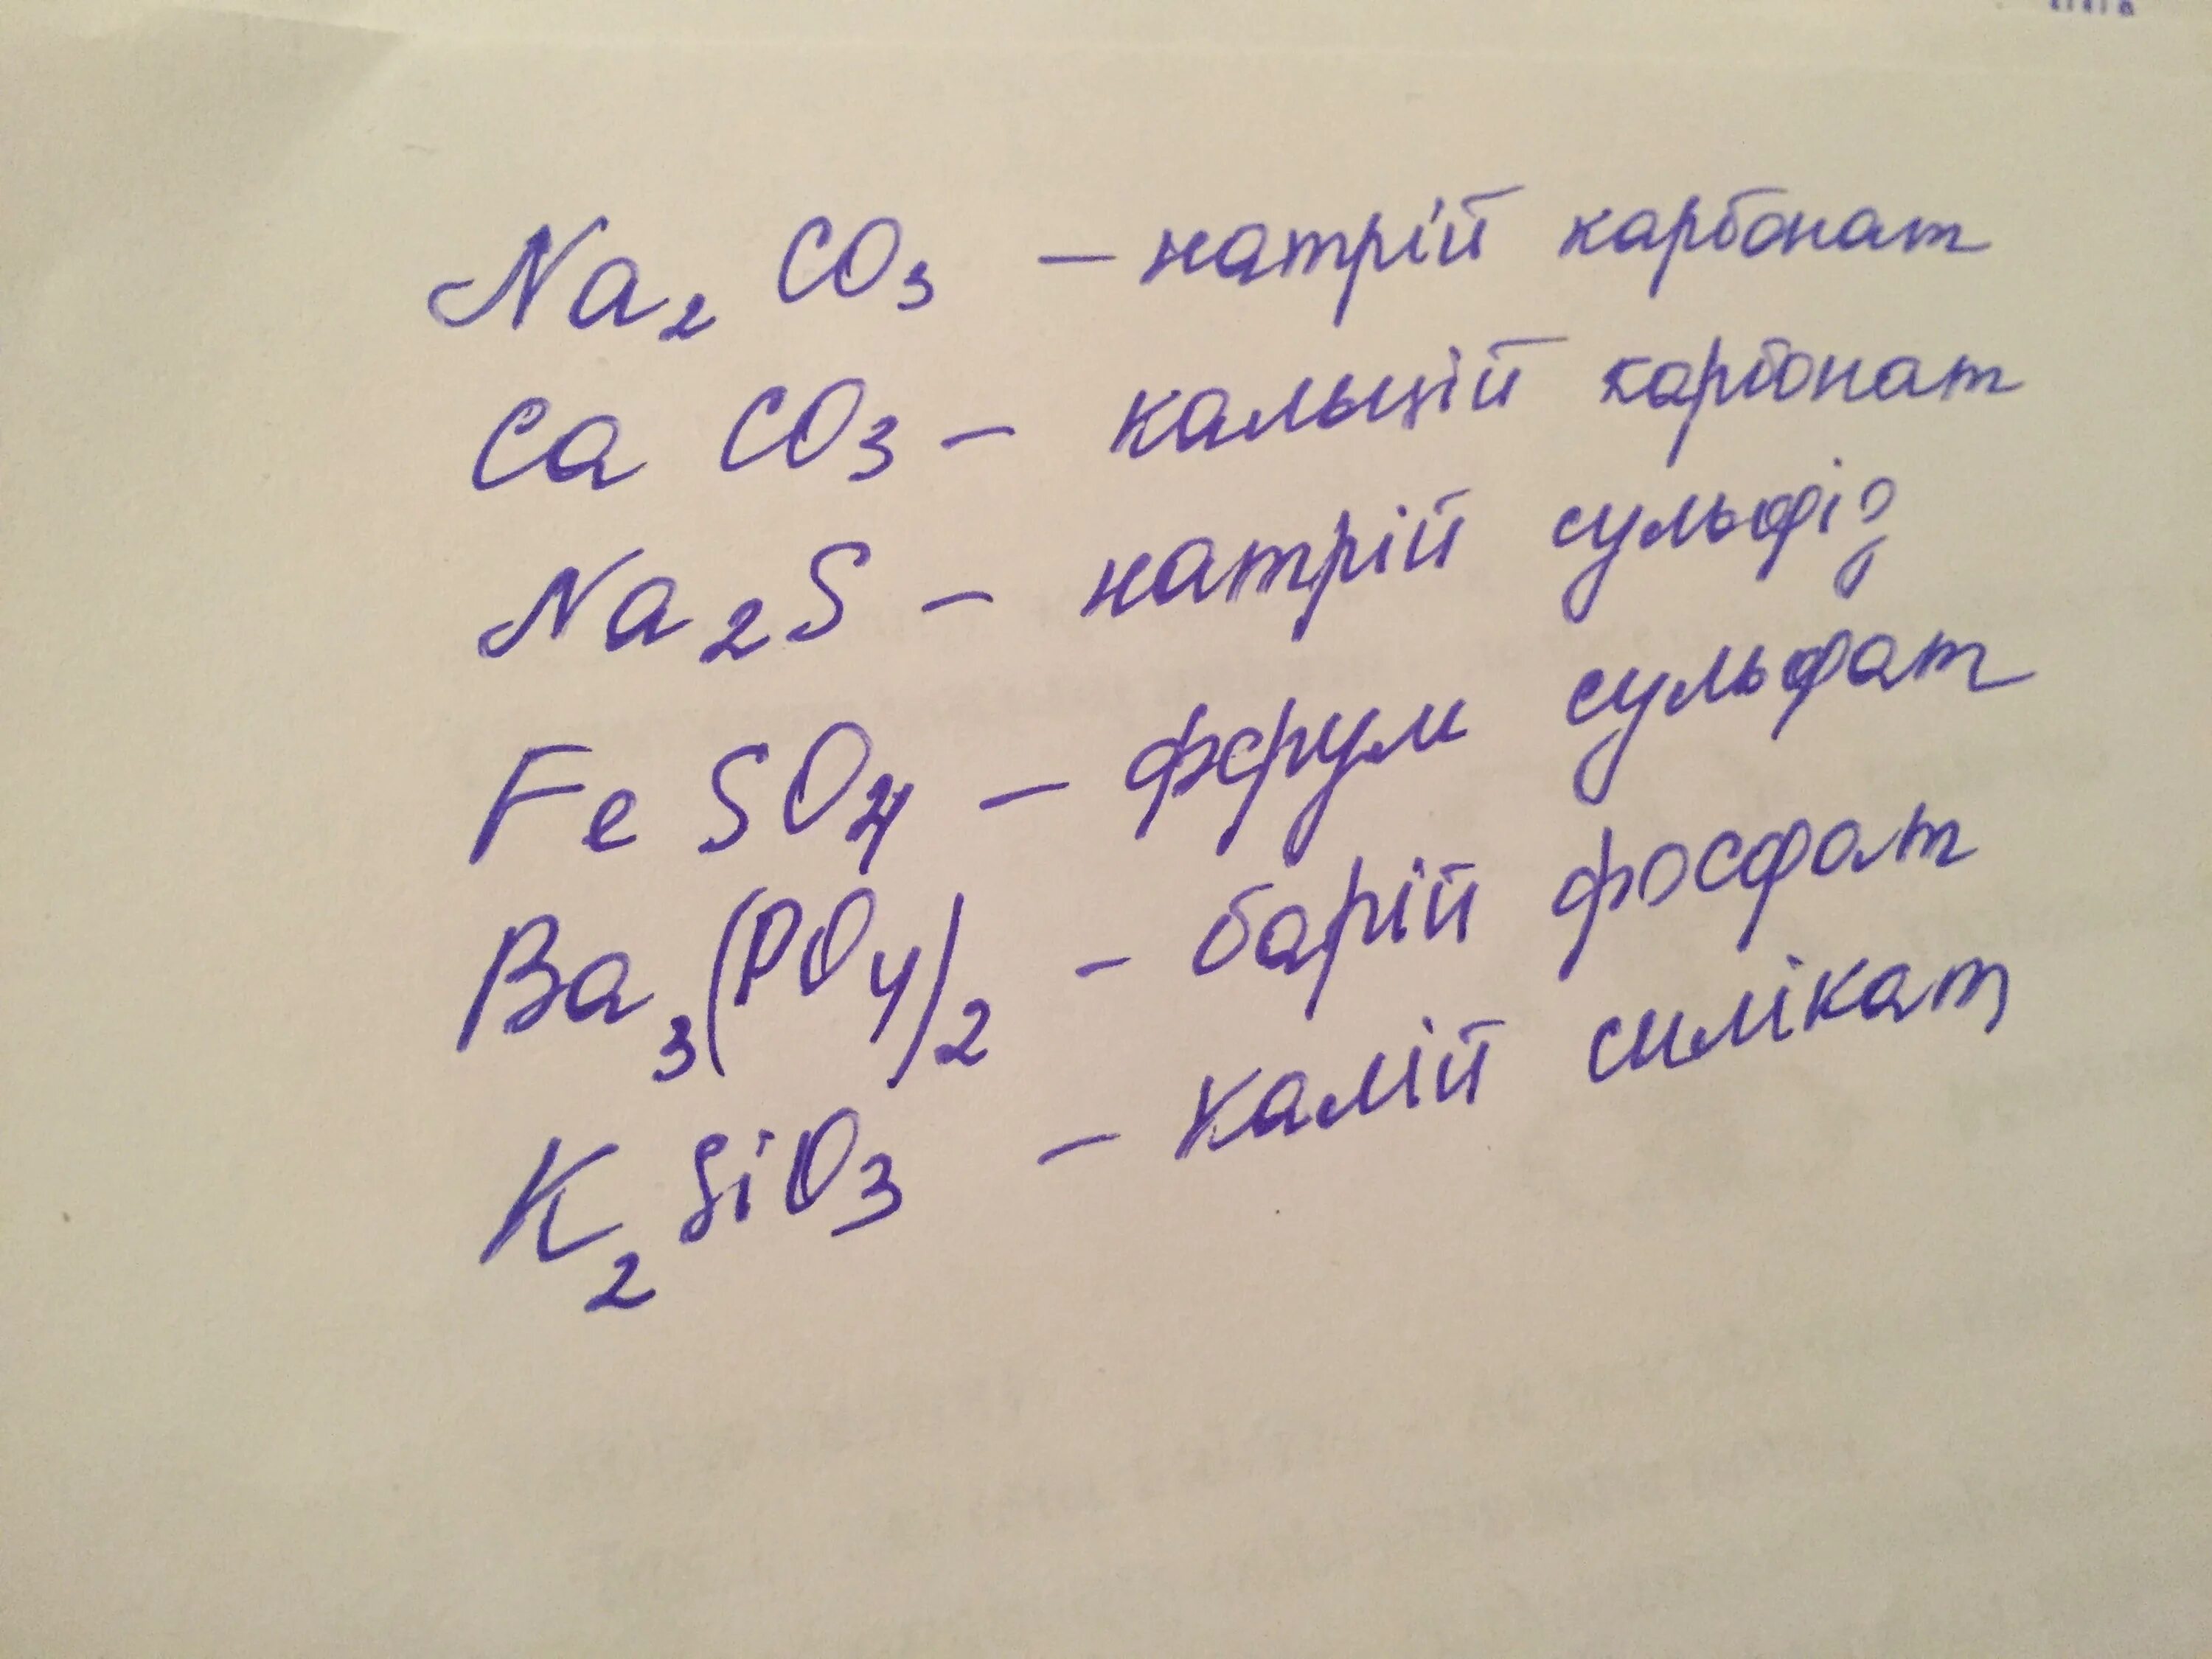 Na₂CO₃ – натрій карбонат
CaCO₃ – кальцій карбонат
Na₂S – натрій сульфід
FeSO₄ – ферум сульфат
Ba₃(PO₄)₂ – барій фосфат
K₂SiO₃ – калій силікат